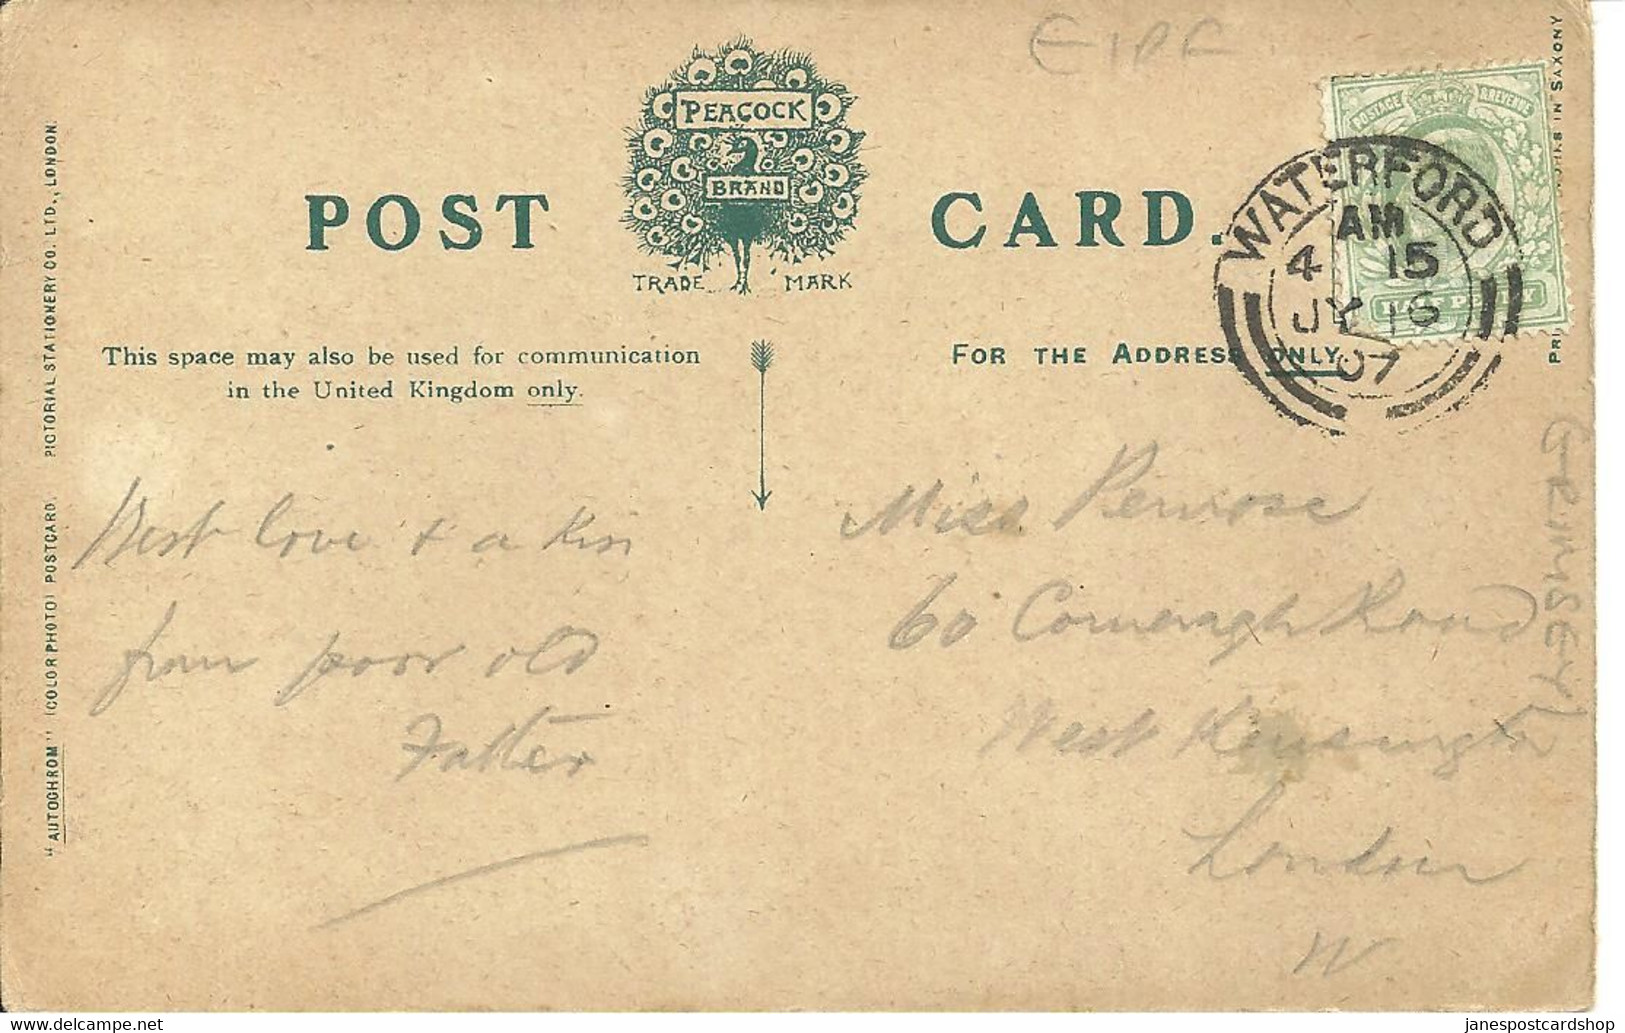 EIRE
PEACOCK
BRAND
TRADE MARK
POST CARD.
This space may also be used for communication
in the United Kingdom only.
FOR THE ADDRESS ONLY.
POSTAGE & REVENUE
HALFPENNY
WATERFORD
AM
4 15
JY 16
07
Best love & a kiss
from poor old
Father
Miss Penrose
60 Comeragh Road
West Kensington
London
W.
"AUTOCHROM" (COLOR PHOTO) POSTCARD. PICTORIAL STATIONERY CO. LTD., LONDON.
IN SAXONY
janespostcardshop